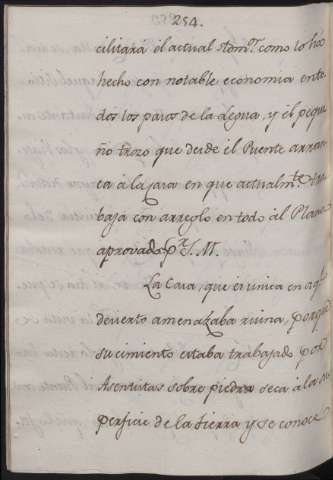 254.
cilitará él actual stem.ͭᵉ como lo ha
hecho con notable economia en to
dos los pasos de la Legua, y él peque
ño trozo que desde él Puente arran
ca á la Casa en que actualm.ᵗᵉ tra
baja con arreglo en todo ál Plano
aprovado p.ʳ S. M.
La Casa, que es unica en aql
desierto amenazaba ruina, porque
su cimiento estaba trabajado por
Asentistas sobre piedra seca á la su
perficie de la tierra y se conoce